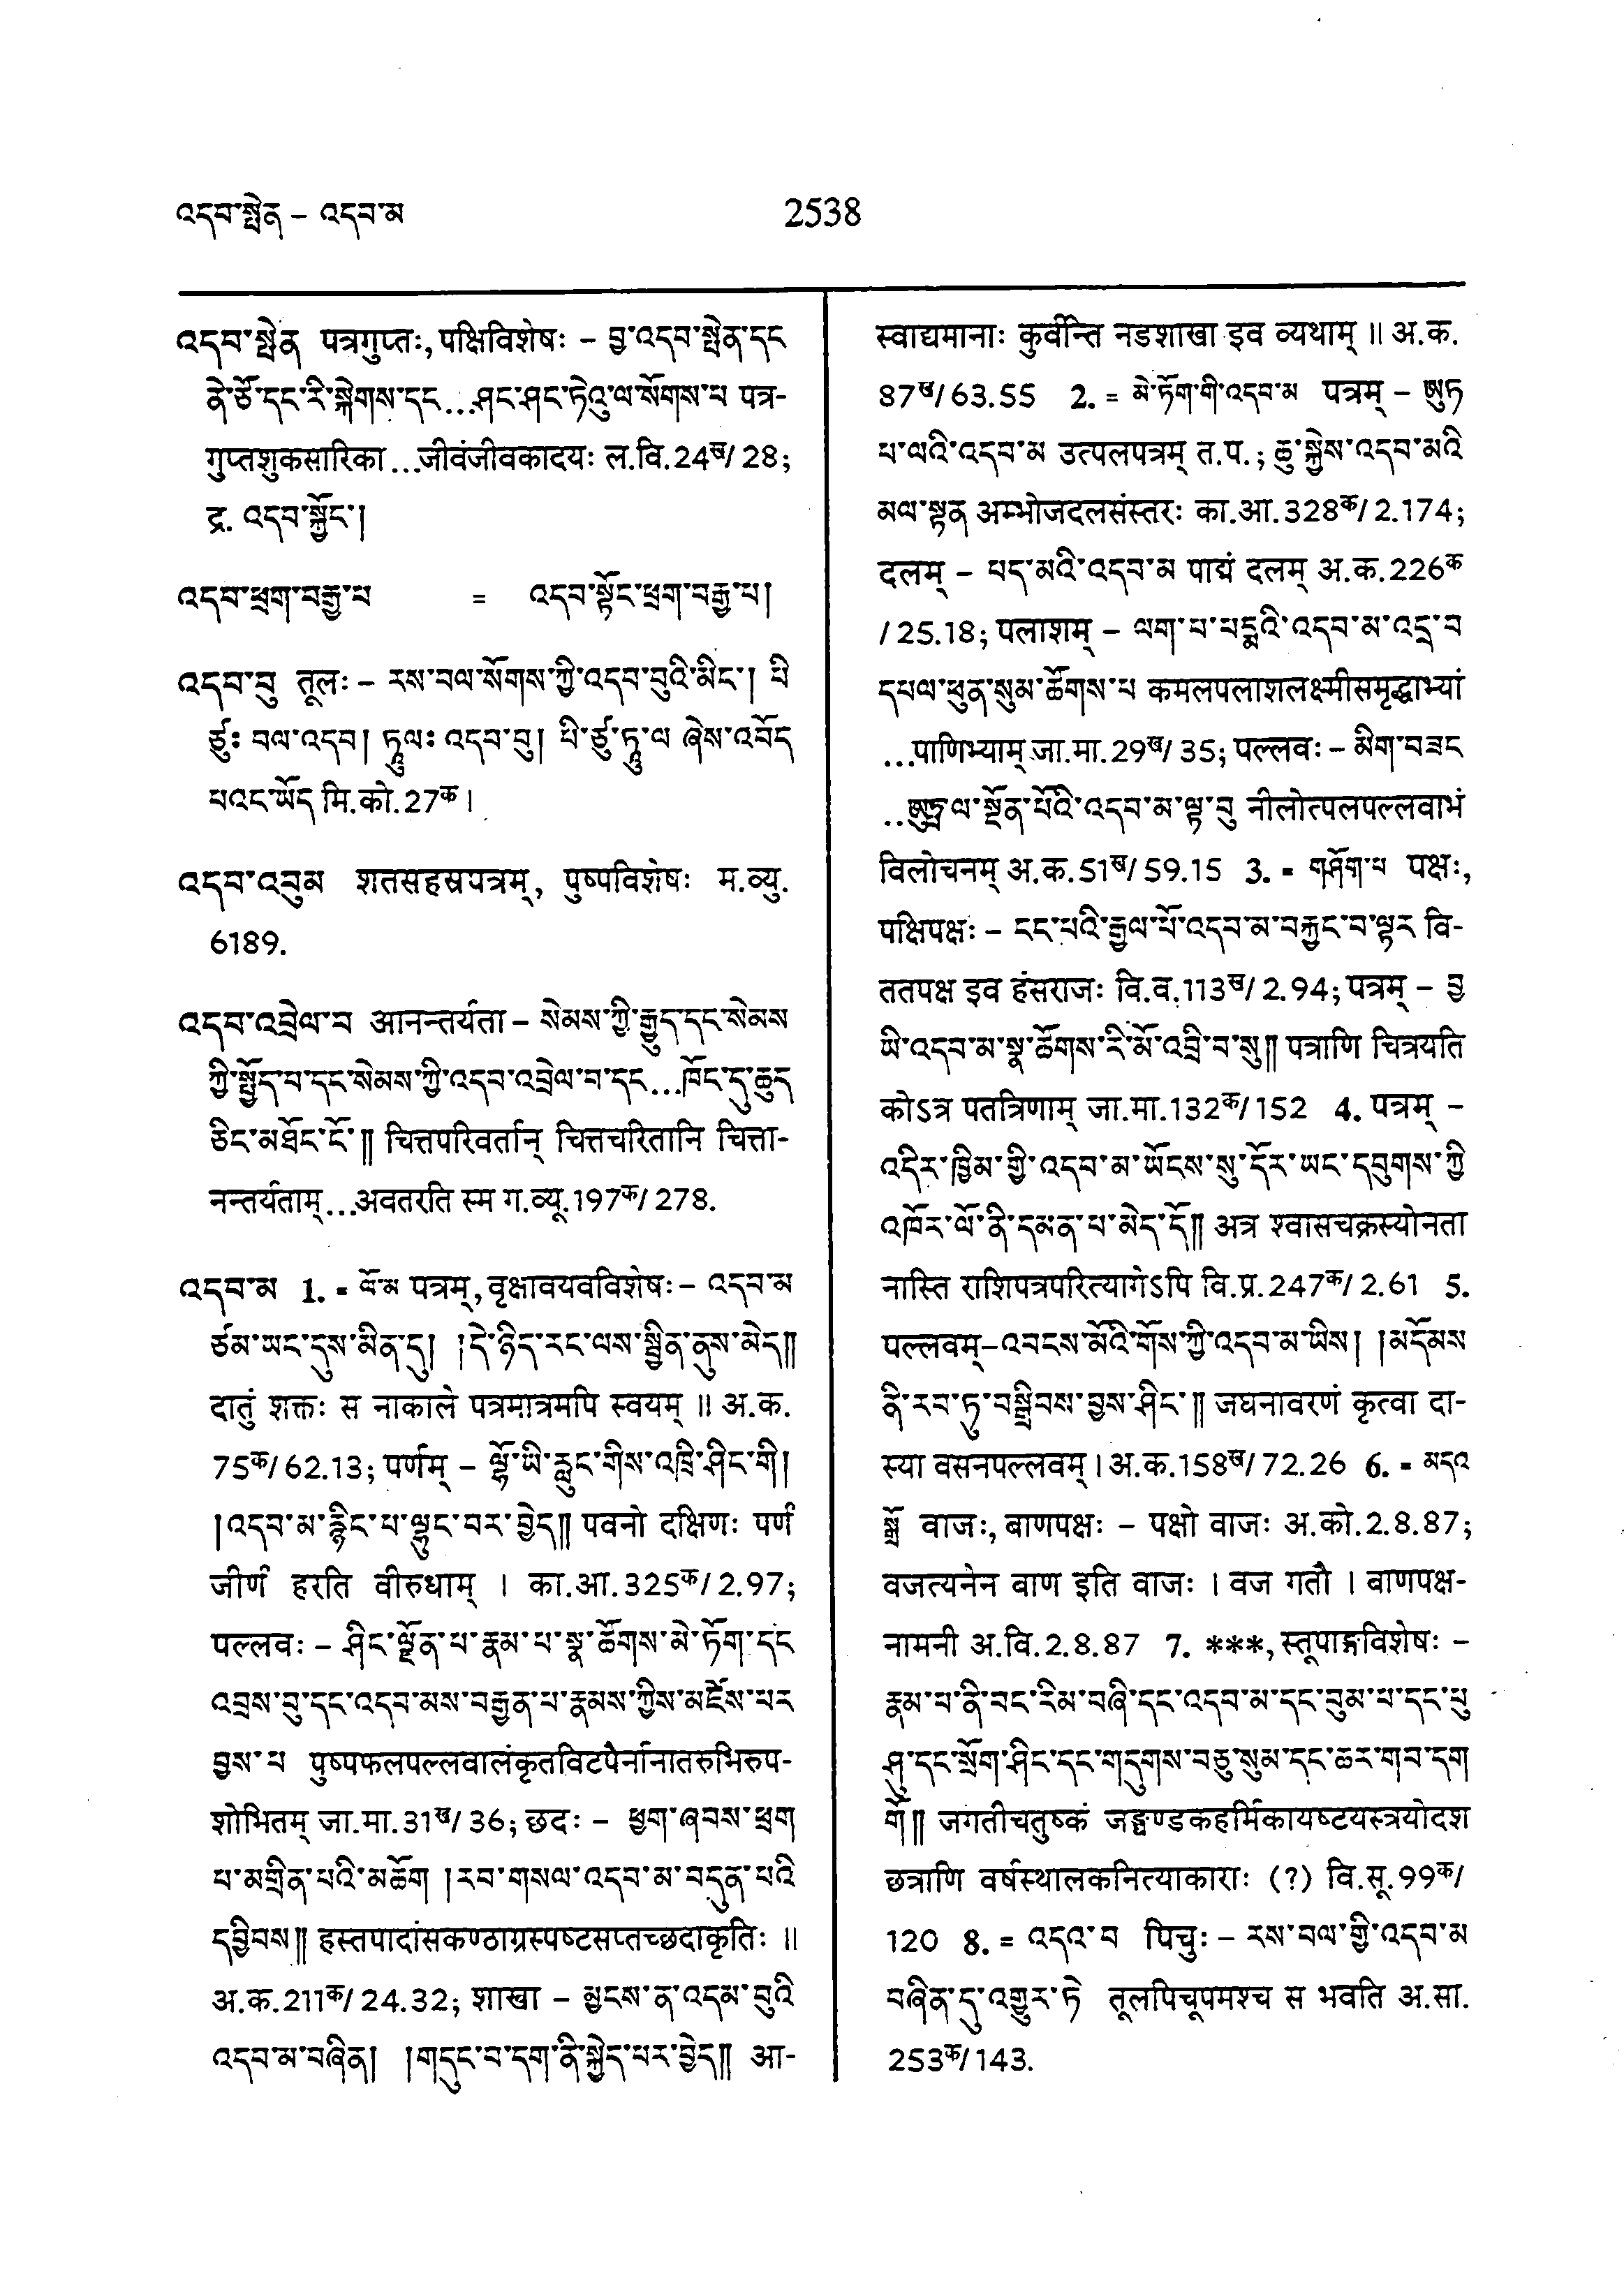 འདབ་སྤེན – འདབ་མ
2538
འདབ་སྤེན पत्रगुप्तः, पक्षिविशेषः – བྱ་འདབ་སྤེན་དང
ནེ་ཙོ་དང་རི་སྐེགས་དང...ཤང་ཤང་ཏེའུ་ལ་སོགས་པ पत्र-
गुप्तशुकसारिका...जीवंजीवकादयः ल.वि.24ख/28;
द्र. འདབ་སྐྱོང་།
འདབ་ཕྲག་བརྒྱ་པ = འདབ་སྟོང་ཕྲག་བརྒྱ་པ།
འདབ་བུ तूलः – རས་བལ་སོགས་ཀྱི་འདབ་བུའི་མིང་། པི
ཙུཿ བལ་འདབ། ཏཱུལཿ འདབ་བུ། པི་ཙུ་ཏཱུ་ལ ཞེས་འབོད
པའང་ཡོད मि.को.27क।
འདབ་འབུམ शतसहस्रपत्रम्, पुष्पविशेषः म.व्यु.
6189.
འདབ་འབྲེལ་བ आनन्तर्यता – སེམས་ཀྱི་རྒྱུད་དང་སེམས
ཀྱི་སྤྱོད་པ་དང་སེམས་ཀྱི་འདབ་འབྲེལ་བ་དང...ཁོང་དུ་ཆུད
ཅིང་མཐོང་ངོ་༎ चित्तपरिवर्तान् चित्तचरितानि चित्ता-
नन्तर्यताम्...अवतरति स्म ग.व्यू.197क/278.
འདབ་མ 1. = ལོ་མ पत्रम्, वृक्षावयवविशेषः – འདབ་མ
ཙམ་ཡང་དུས་མིན་དུ། །དེ་ཉིད་རང་ལས་སྦྱིན་ནུས་མེད༎
दातुं शक्तः स नाकाले पत्रमात्रमपि स्वयम् ॥ अ.क.
75क/62.13; पर्णम् – ལྷོ་ཡི་རླུང་གིས་འཁྲི་ཤིང་གི།
།འདབ་མ་རྙིང་པ་ལྷུང་བར་བྱེད༎ पवनो दक्षिणः पर्णं
जीर्णं हरति वीरुधाम् । का.आ.325क/2.97;
पल्लवः – ཤིང་ལྗོན་པ་རྣམ་པ་སྣ་ཚོགས་མེ་ཏོག་དང
འབྲས་བུ་དང་འདབ་མས་བརྒྱན་པ་རྣམས་ཀྱིས་མཛེས་པར
བྱས་པ पुष्पफलपल्लवालंकृतविटपैर्नानातरुभिरुप-
शोभितम् जा.मा.31ख/36; छदः – ཕྱག་ཞབས་ཕྲག
པ་མགྲིན་པའི་མཆོག །རབ་གསལ་འདབ་མ་བདུན་པའི
དབྱིབས༎ हस्तपादांसकण्ठाग्रस्पष्टसप्तच्छदाकृतिः ॥
अ.क.211क/24.32; शाखा – མྱངས་ན་འདམ་བུའི
འདབ་མ་བཞིན། །གདུང་བ་དག་ནི་སྐྱེད་པར་བྱེད༎ आ-
स्वाद्यमानाः कुर्वन्ति नडशाखा इव व्यथाम् ॥ अ.क.
87ख/63.55 2. = མེ་ཏོག་གི་འདབ་མ पत्रम् – ཨུཏ
པ་ལའི་འདབ་མ उत्पलपत्रम् त.प.; ཆུ་སྐྱེས་འདབ་མའི
མལ་སྟན अम्भोजदलसंस्तरः का.आ.328क/2.174;
दलम् – པད་མའི་འདབ་མ पाद्मं दलम् अ.क.226क
/25.18; पलाशम् – ལག་པ་པདྨའི་འདབ་མ་འདྲ་བ
དཔལ་ཕུན་སུམ་ཚོགས་པ कमलपलाशलक्ष्मीसमृद्धाभ्यां
...पाणिभ्याम् जा.मा.29ख/35; पल्लवः – མིག་བཟང
...ཨུཏྤ་ལ་སྔོན་པོའི་འདབ་མ་ལྟ་བུ नीलोत्पलपल्लवाभं
विलोचनम् अ.क.51ख/59.15 3. = གཤོག་པ पक्षः,
पक्षिपक्षः – ངང་པའི་རྒྱལ་པོ་འདབ་མ་བརྐྱང་བ་ལྟར वि-
ततपक्ष इव हंसराजः वि.व.113ख/2.94; पत्रम् – བྱ
ཡི་འདབ་མ་སྣ་ཚོགས་རི་མོ་འབྲི་བ་སུ༎ पत्राणि चित्रयति
कोऽत्र पतत्रिणाम् जा.मा.132क/152 4. पत्रम् –
འདིར་ཁྱིམ་གྱི་འདབ་མ་ཡོངས་སུ་དོར་ཡང་དབུགས་ཀྱི
འཁོར་ལོ་ནི་དམན་པ་མེད་དོ༎ अत्र श्वासचक्रस्योनता
नास्ति राशिपत्रपरित्यागेऽपि वि.प्र.247क/2.61 5.
पल्लवम्–འབངས་མོའི་གོས་ཀྱི་འདབ་མ་ཡིས། །མདོམས
ནི་རབ་ཏུ་བསྒྲིབས་བྱས་ཤིང་༎ जघनावरणं कृत्वा दा-
स्या वसनपल्लवम्।अ.क.158ख/72.26 6. = མདའ
སྒྲོ वाजः, बाणपक्षः – पक्षो वाजः अ.को.2.8.87;
वजत्यनेन बाण इति वाजः । वज गतौ । बाणपक्ष-
नामनी अ.वि.2.8.87 7. ***, स्तूपाङ्गविशेषः –
རྣམ་པ་ནི་བང་རིམ་བཞི་དང་འདབ་མ་དང་བུམ་པ་དང་པུ
ཤུ་དང་སྲོག་ཤིང་དང་གདུགས་བཅུ་སུམ་དང་ཆར་གབ་དག
གོ༎ जगतीचतुष्कं जङ्घाण्डकहर्मिकायष्टयस्त्रयोदश
छत्राणि वर्षस्थालकनित्याकाराः (?) वि.सू.99क/
120 8. = འདའ་བ पिचुः – རས་བལ་གྱི་འདབ་མ
བཞིན་དུ་འགྱུར་ཏེ तूलपिचूपमश्च स भवति अ.सा.
253क/143.